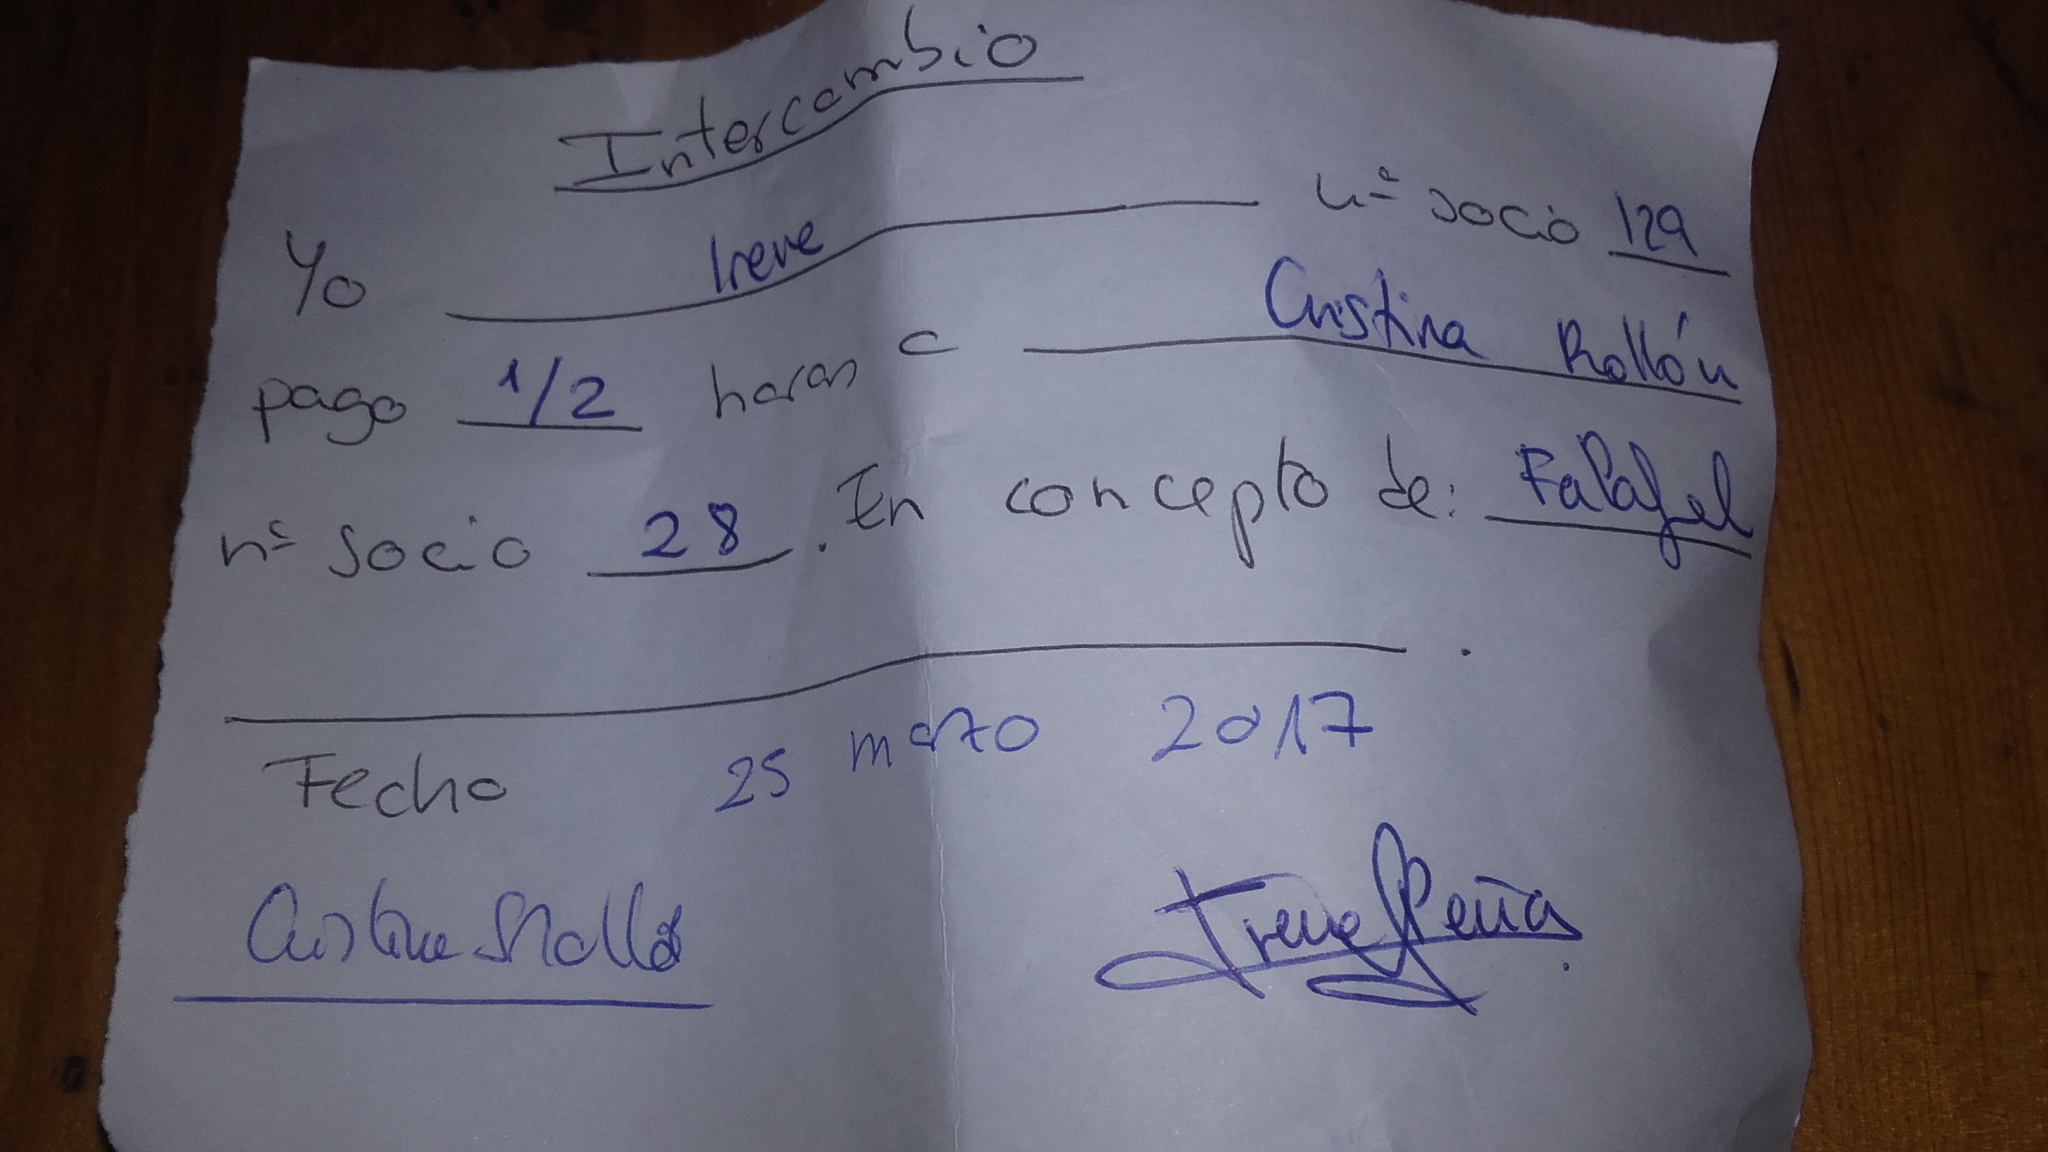 Intercambio
Yo Irene nº socio 129
pago 1/2 horas a Cristina Rollón
nº socio 28. En concepto de: Falafel
.
Fecha 25 marzo 2017
Cristina Rolló Irene Peña